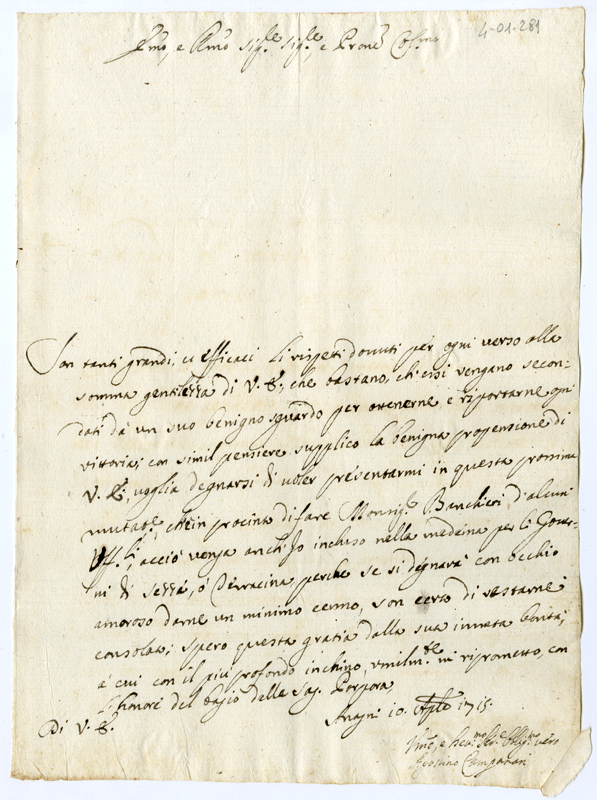 4-01-281
Emo, e Rmo Sig.re Sig.re, e Prone Col.mo
Son tanti grandi, et efficaci li rispetti dovuti per ogni verso alla
somma gentilezza di V. E., che bastano, ch'essi vengano secon-
dati da un suo benigno sguardo per ottenerne e riportarne ogni
vittoria; con simil pensiere supplico la benigna propensione di
V. E., voglia degnarsi di voler presentarmi in questa prossima
mutat.e, che in procinto di fare Monsig.r Banchieri d'alcuni
Uff.li, acciò venga anch'Io incluso nella medema per li Gover-
ni di Sezza, ò Terracina perche se si degnarà con occhio
amoroso darne un minimo cenno, son certo di restarne
consolato; spero questa gratia dalla sua innata bontà,
à cui con il più profondo inchino, umilm.te mi riprometto, con
l'honore del bagio della Sag. Porpora,
Anagni 10. Aple 1715.
Di V. E.
Agostino Campanari